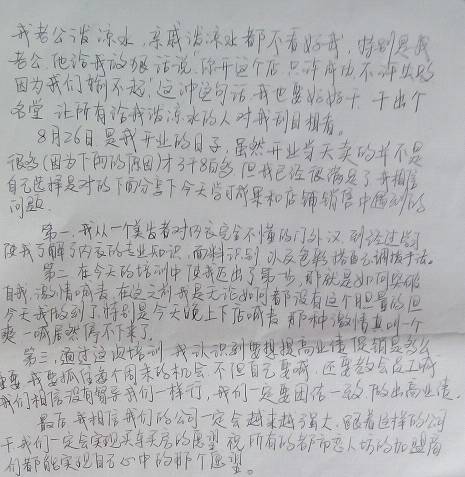 我老公泼凉水，亲戚泼凉水都不看好我，特别是我
老公，他给我放狠话说，你开这个店只许成功不许失败
因为我们输不起！这冲这句话，我也要好好干，干出个
名堂，让所有给我泼凉水的人对我刮目相看。
8月26日是我开业的日子，虽然开业当天卖的并不是
很多(因为下雨的原因)才3千8百多，但我已经很满足了，我相信
自己选择是对的，下面分享下今天学习成果和店铺销售中遇到的
问题。
第一，我从一个美
对内衣完全不懂的门外汉，到
使我了解了内衣的专业知识，面料识别，以及
调拨手法。
第二，在今天的培训中，使我迈出了第一步，那就是如何突破
自我，激情喊麦，在这之前我是无论如何都没有这个胆量的，但
今天我做到了，特别是今天晚上下店喊麦，那种激情真叫一个
爽，一喊居然停不下来了。
第三，通过这次培训，我认识到要想提高业绩，促销是多么
重要，我要抓住每个周末的机会，不但自己要喊，还要教会员工喊
我们相信没有解
我们一样行，我们一定要团结一致，做出高业绩。
最后，我相信我们的公司一定会越来越强大，跟着这样的公司
干，我们一定会实现买车买房的愿望，祝所有的都市恋人坊的加盟商
们都能实现自己心中的那个愿望。